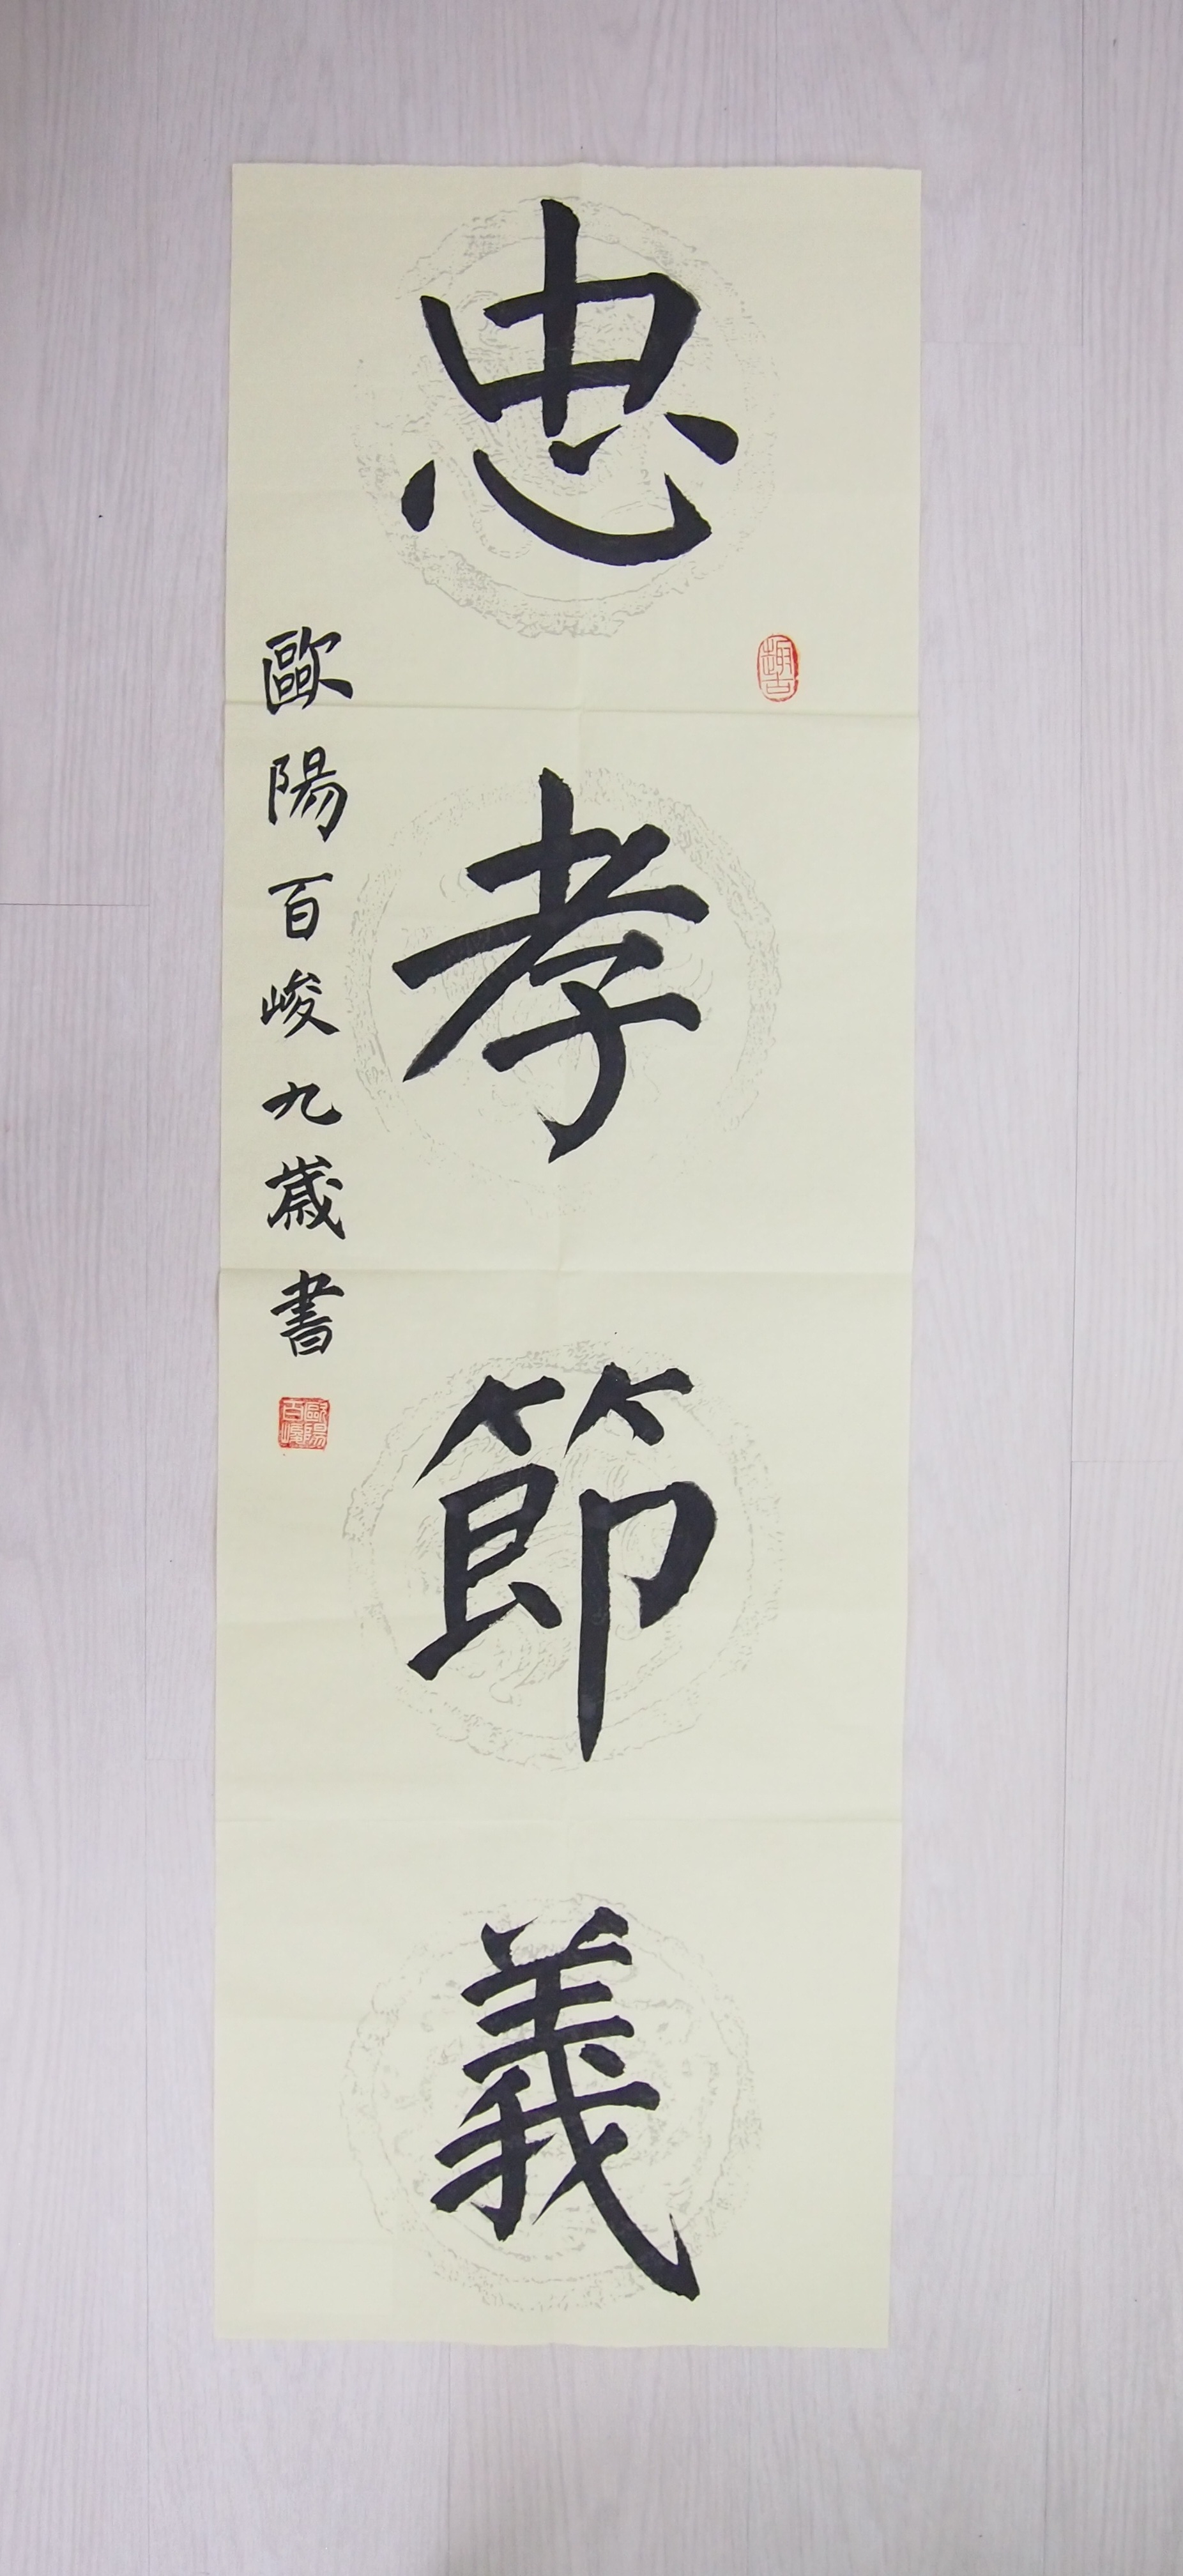 忠孝節義
趣古
歐陽百峻九歲書
歐陽百峻